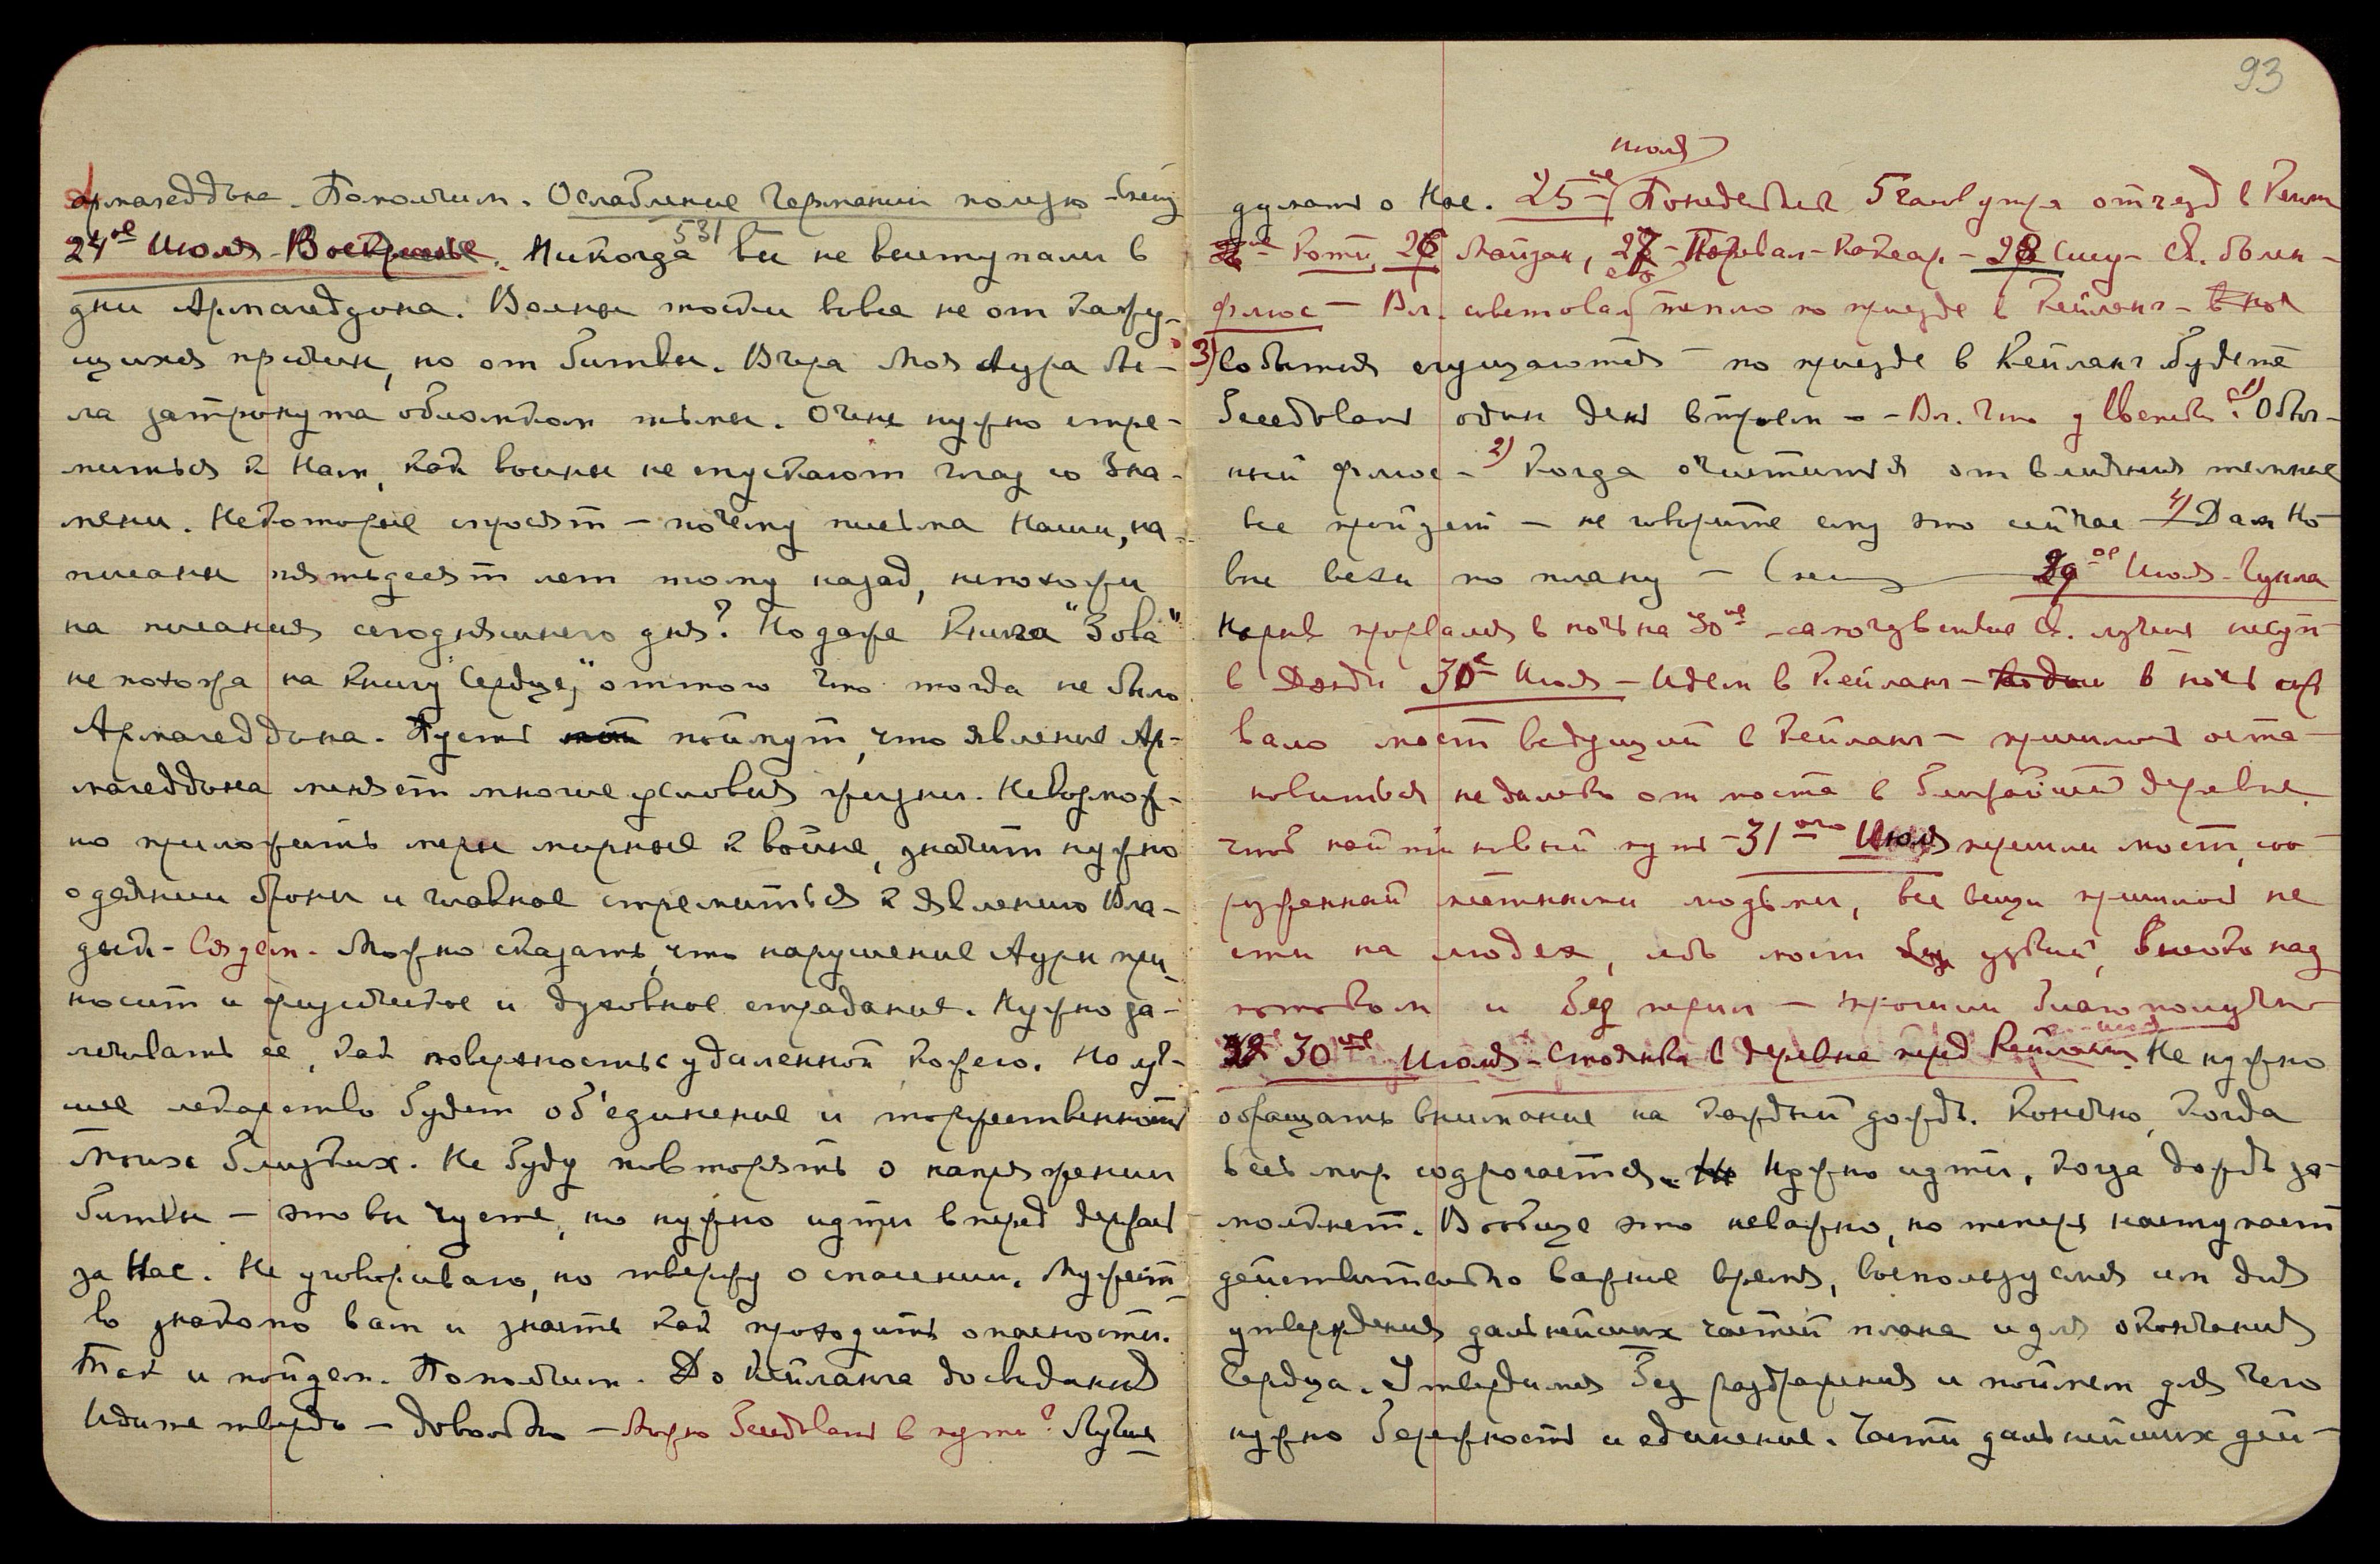 Армагеддона. Помолчим. Ослабление Германии полезно
24ое Июля. Воскресенье. 531 Никогда вы не выступали в
дни Армагеддона. Волны тоски вовсе не от кажу-
щихся причин, но от битвы. Вчера Моя Аура бы-
ла затронута обломком тьмы. Очень нужно стре-
миться к Нам, как воины не спускают глаз со Зна-
мени. Некоторые спросят – почему письма Наши, на-
писанные пятьдесят лет тому назад, непохожи
на писания сегодняшнего дня? Но даже Книга "Зова"
не похожа на Книгу "Сердце," оттого что тогда не было
Армагеддона. Пусть поймут, что явление Ар-
магеддона меняет многие условия жизни. Невозмож-
но приложить меры мирные к войне, значит нужно
одеянии брони и главное стремиться к явлению Вла-
дык – Создам. Можно сказать, что нарушение Ауры при-
носит и физическое и духовное страдание. Нужно за-
лечивать её, как поверхность с удаленной кожею. Но луч-
шее лекарство будет об'единение и торжественность
Моих близких. Не буду повторять о напряжении
битвы – это вы чуете, но нужно идти вперед держась
за Нас. Не уговариваю, но твержу о спасении. Мужест-
во знакомо вам и знаете как проходить опасности.
Так и пойдем. Помолчим. До Кейланга досвиданья
Идите твердо – довольно – Можно беседовать в пути? Лучше
93
июля
думать о Нас. 25ое Понедельник 5 часов утра отъезд в
Роти, 26 Майдан, 27 – Перевал – Кокcар – 28 Сису – Св. болен –
флюс – Вл. советовал тепло по приезде в Кейланг –
3) События сгущаются – по приезде в Кейланг будете
беседовать один день втроем – – Вл. Что у Света? 1) Обыч-
ный флюс – 2) Когда очистится от влияния темные
все пройдет – не говорите ему это сейчас 4) Дам но-
вые вехи по плану – 29ое Июля – Гунла
Нарыв прорвался в ночь на 30ое – самочувствие Св. лучше несут
в Дэнди 30е Июля – Идем в Кейланг – в ночь сор
вало мост ведущий в Кейланг – пришлось оста-
новиться недалеко от моста в ближайшей деревне,
чтоб найти новый путь – 31ого Июля прошли мост, соо
руженный местными людьми, все вещи пришлось не
сти на людях, ибо мост узкий, высоко над
потоком и без перил – прошли благополучно
30ое Июля – Стоянка в деревне перед Кейлангом. Не нужно
обращать внимание на каждый дождь. Конечно, когда
весь мир содрогается. Нужно идти, когда дождь за-
молкнет. Вообще это неважно, но теперь наступает
действительно важное время, воспользуемся им для
утверждения дальнейших частей плана и для окончания
Сердца. Утвердимся без раздражения и поймем для чего
нужно бережность и единение. Части дальнейших дей-